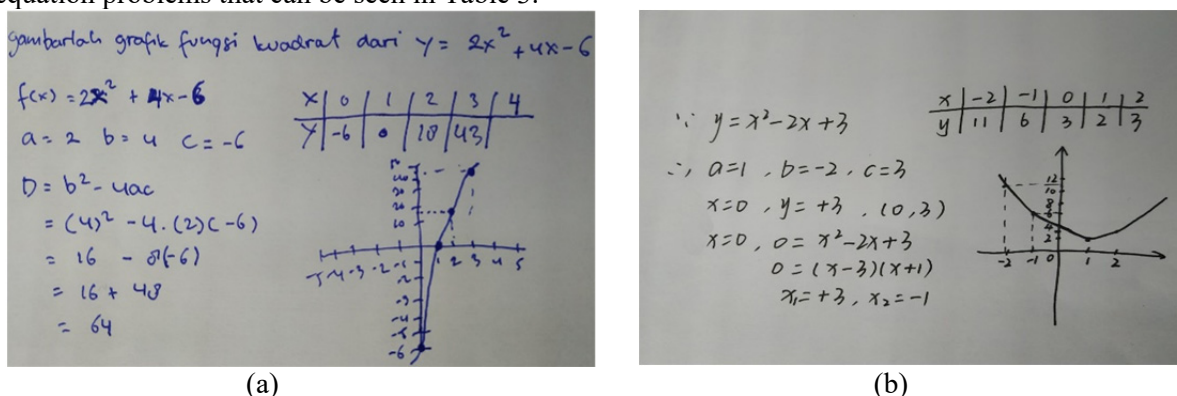 equation problems that can be seen in Table 3.
gambarlah grafik fungsi kuadrat dari y = 2x² + 4x - 6
f(x) = 2x² + 4x - 6
a = 2 b = 4 c = -6
D = b² - 4ac
= (4)² - 4. (2)(-6)
= 16 - 8(-6)
= 16 + 48
= 64
x | 0 | 1 | 2 | 3 | 4
y | -6 | 0 | 10 | 43 |
30
20
10
-5 -4 -3 -2 -1 1 2 3 4 5
-2
-3
-4
-5
-6
(a)
∵ y = x² - 2x + 3
∴, a=1 , b=-2 , c=3
x=0 , y=+3 , (0,3)
x=0 , 0 = x² - 2x + 3
0 = (x-3)(x+1)
x₁=+3, x₂=-1
x | -2 | -1 | 0 | 1 | 2
y | 11 | 6 | 3 | 2 | 3
12
10
8
6
4
2
-2 -1 0 1 2
(b)